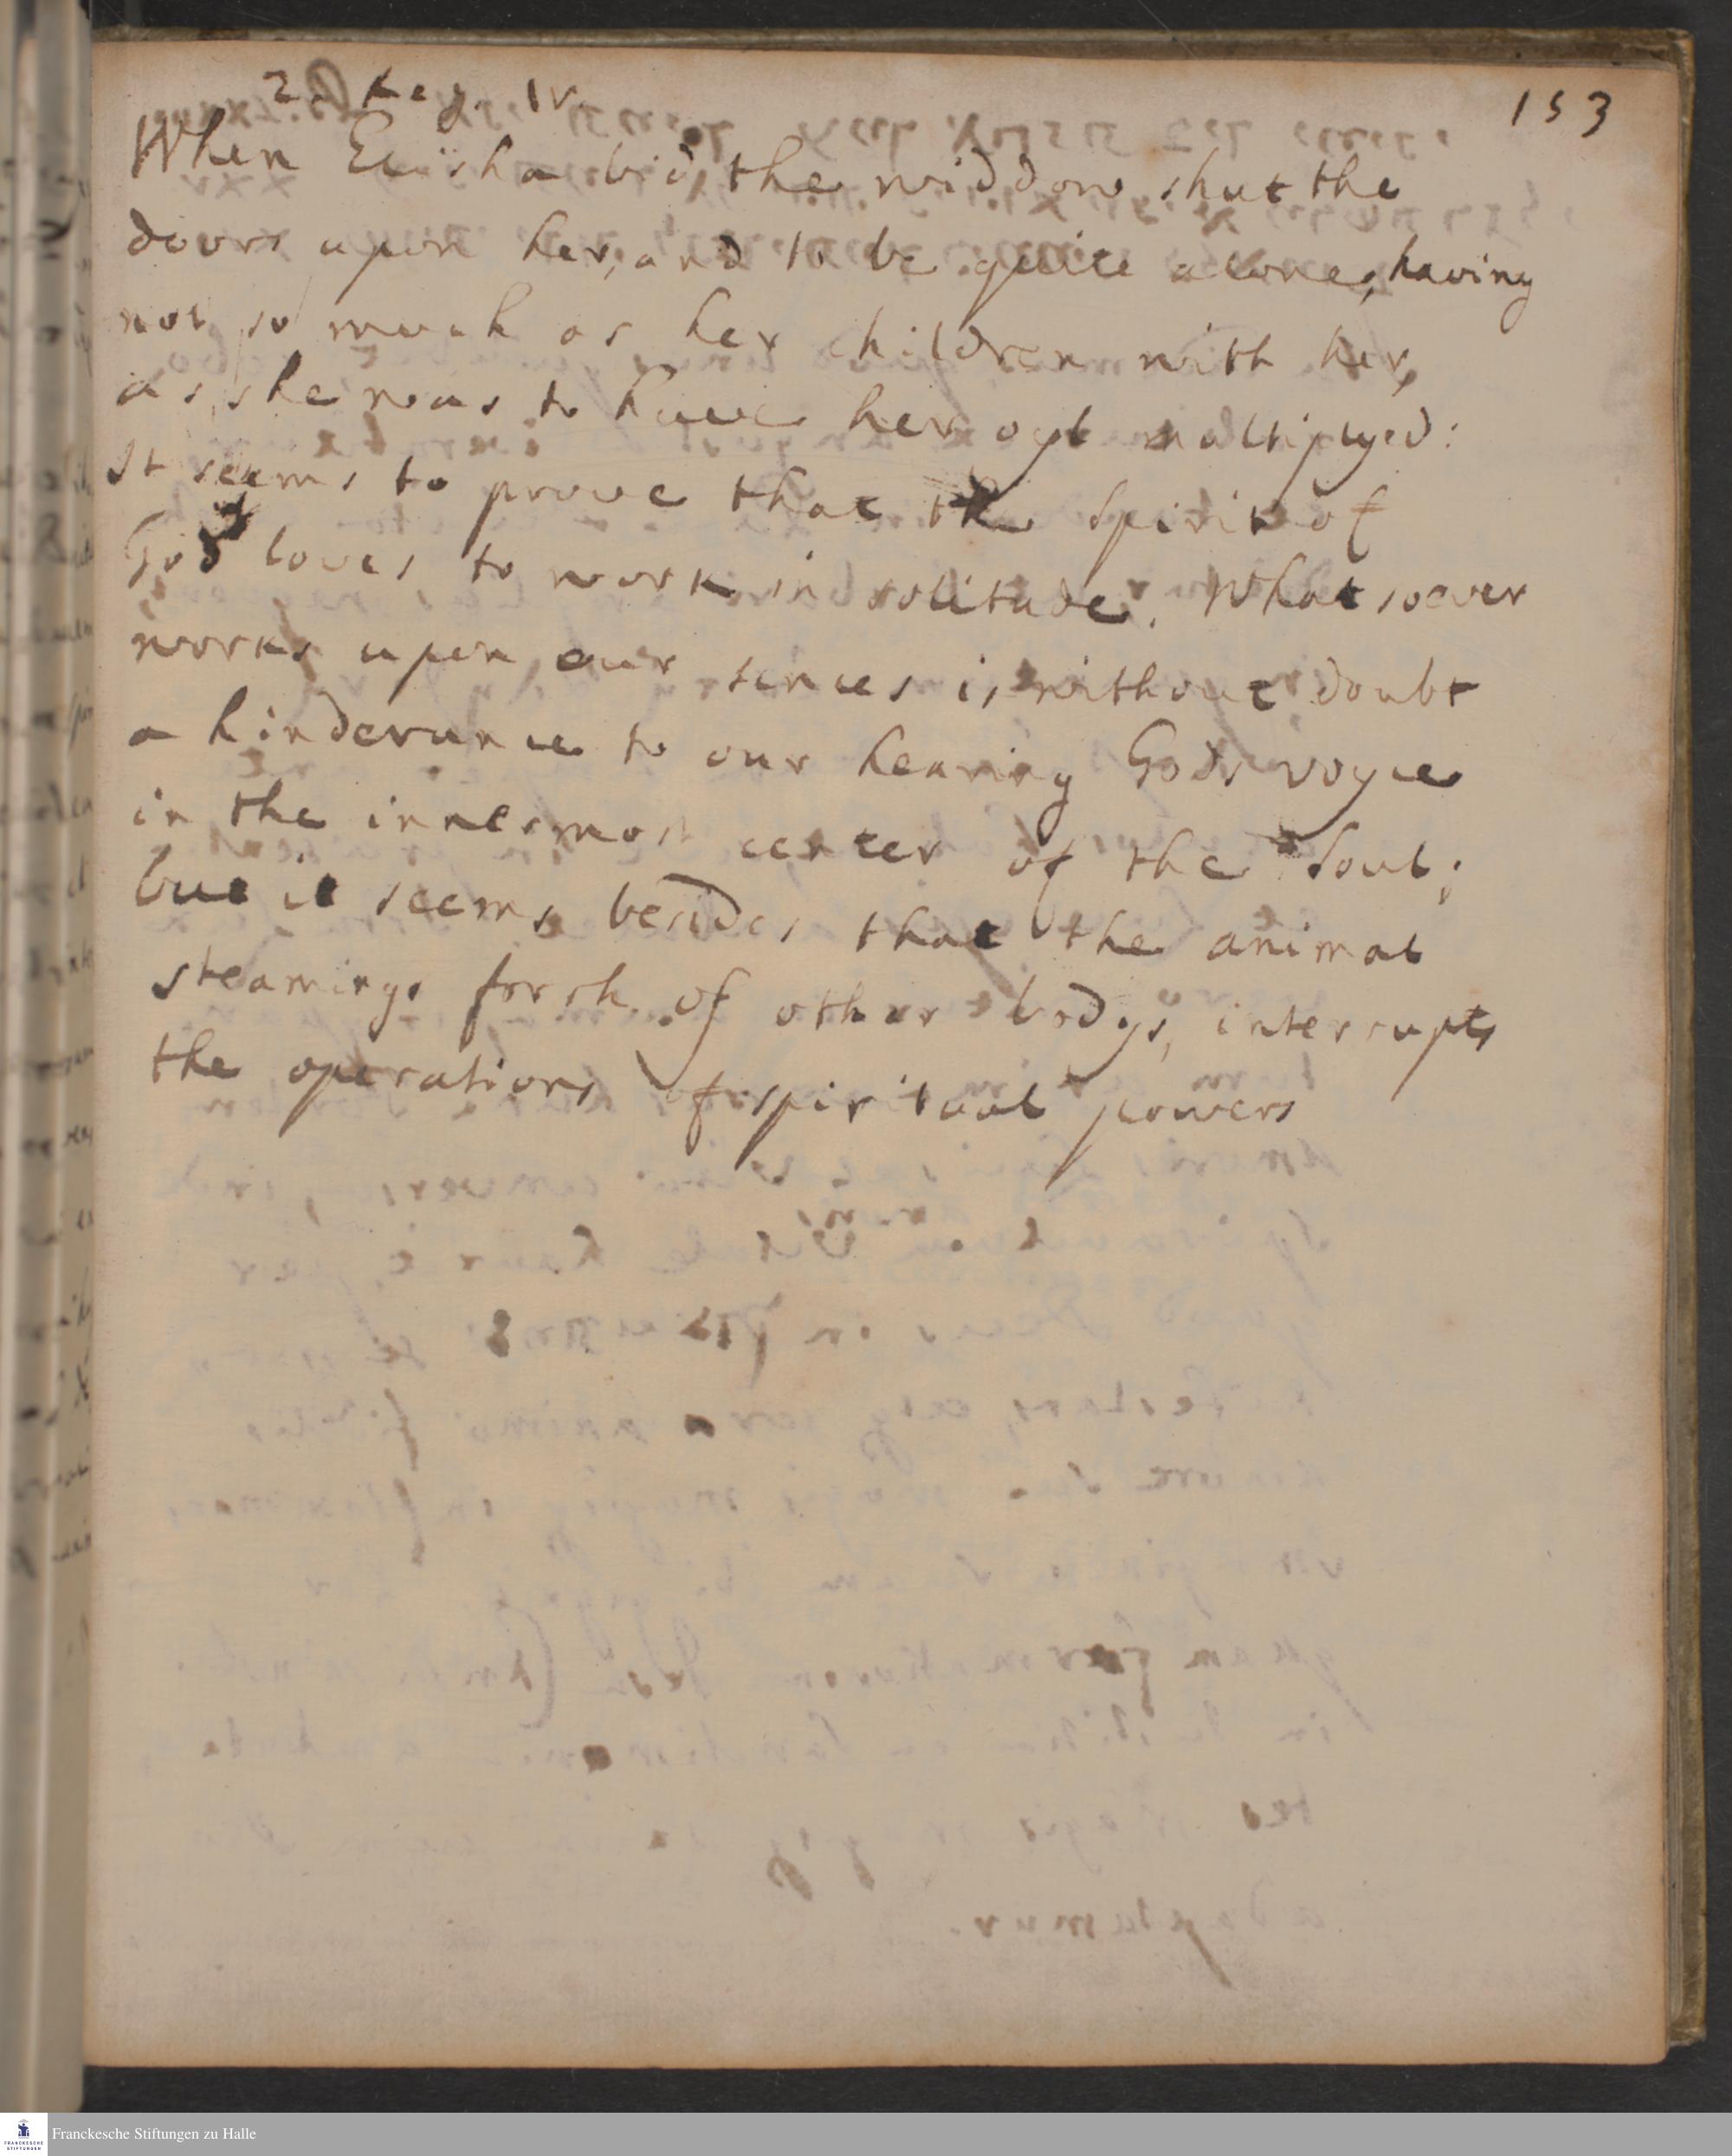 153
2. Reg. IV.
When Elisha bid the widdow shut the
doors upon her, and to be quite alone, having
not so much as her children with her,
as she was to have her oyl multiplyed:
It seems to prove that the Spirit of
God loves to work in solitude. Whatsoever
works upon our sences is without doubt
a hinderance to our hearing Gods voyce
in the innermost center of the Soul;
but it seems besides that the animal
steamings forth of other bodys, interrupts
the operations of spiritual powers
Franckesche Stiftungen zu Halle
FRANCKESCHE
STIFTUNGEN